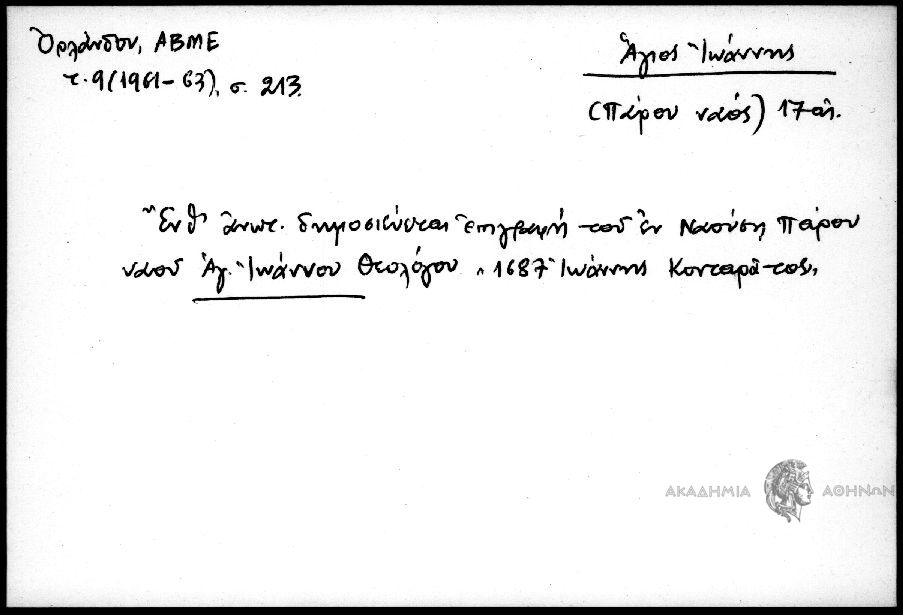 Ὀρλάνδου, ΑΒΜΕ
τ. 9 (1961-63), σ. 213.
Ἅγιος Ἰωάννης
(Πάρου ναός) 17 αἰ.
Ἔνθ' ἀνωτ. δημοσιεύεται ἐπιγραφή τοῦ ἐν Ναούσῃ Πάρου
ναοῦ Ἁγ. Ἰωάννου Θεολόγου "1687 Ἰωάννης Κονταρᾶτος"
ΑΚΑΔΗΜΙΑ ΑΘΗΝΩΝ